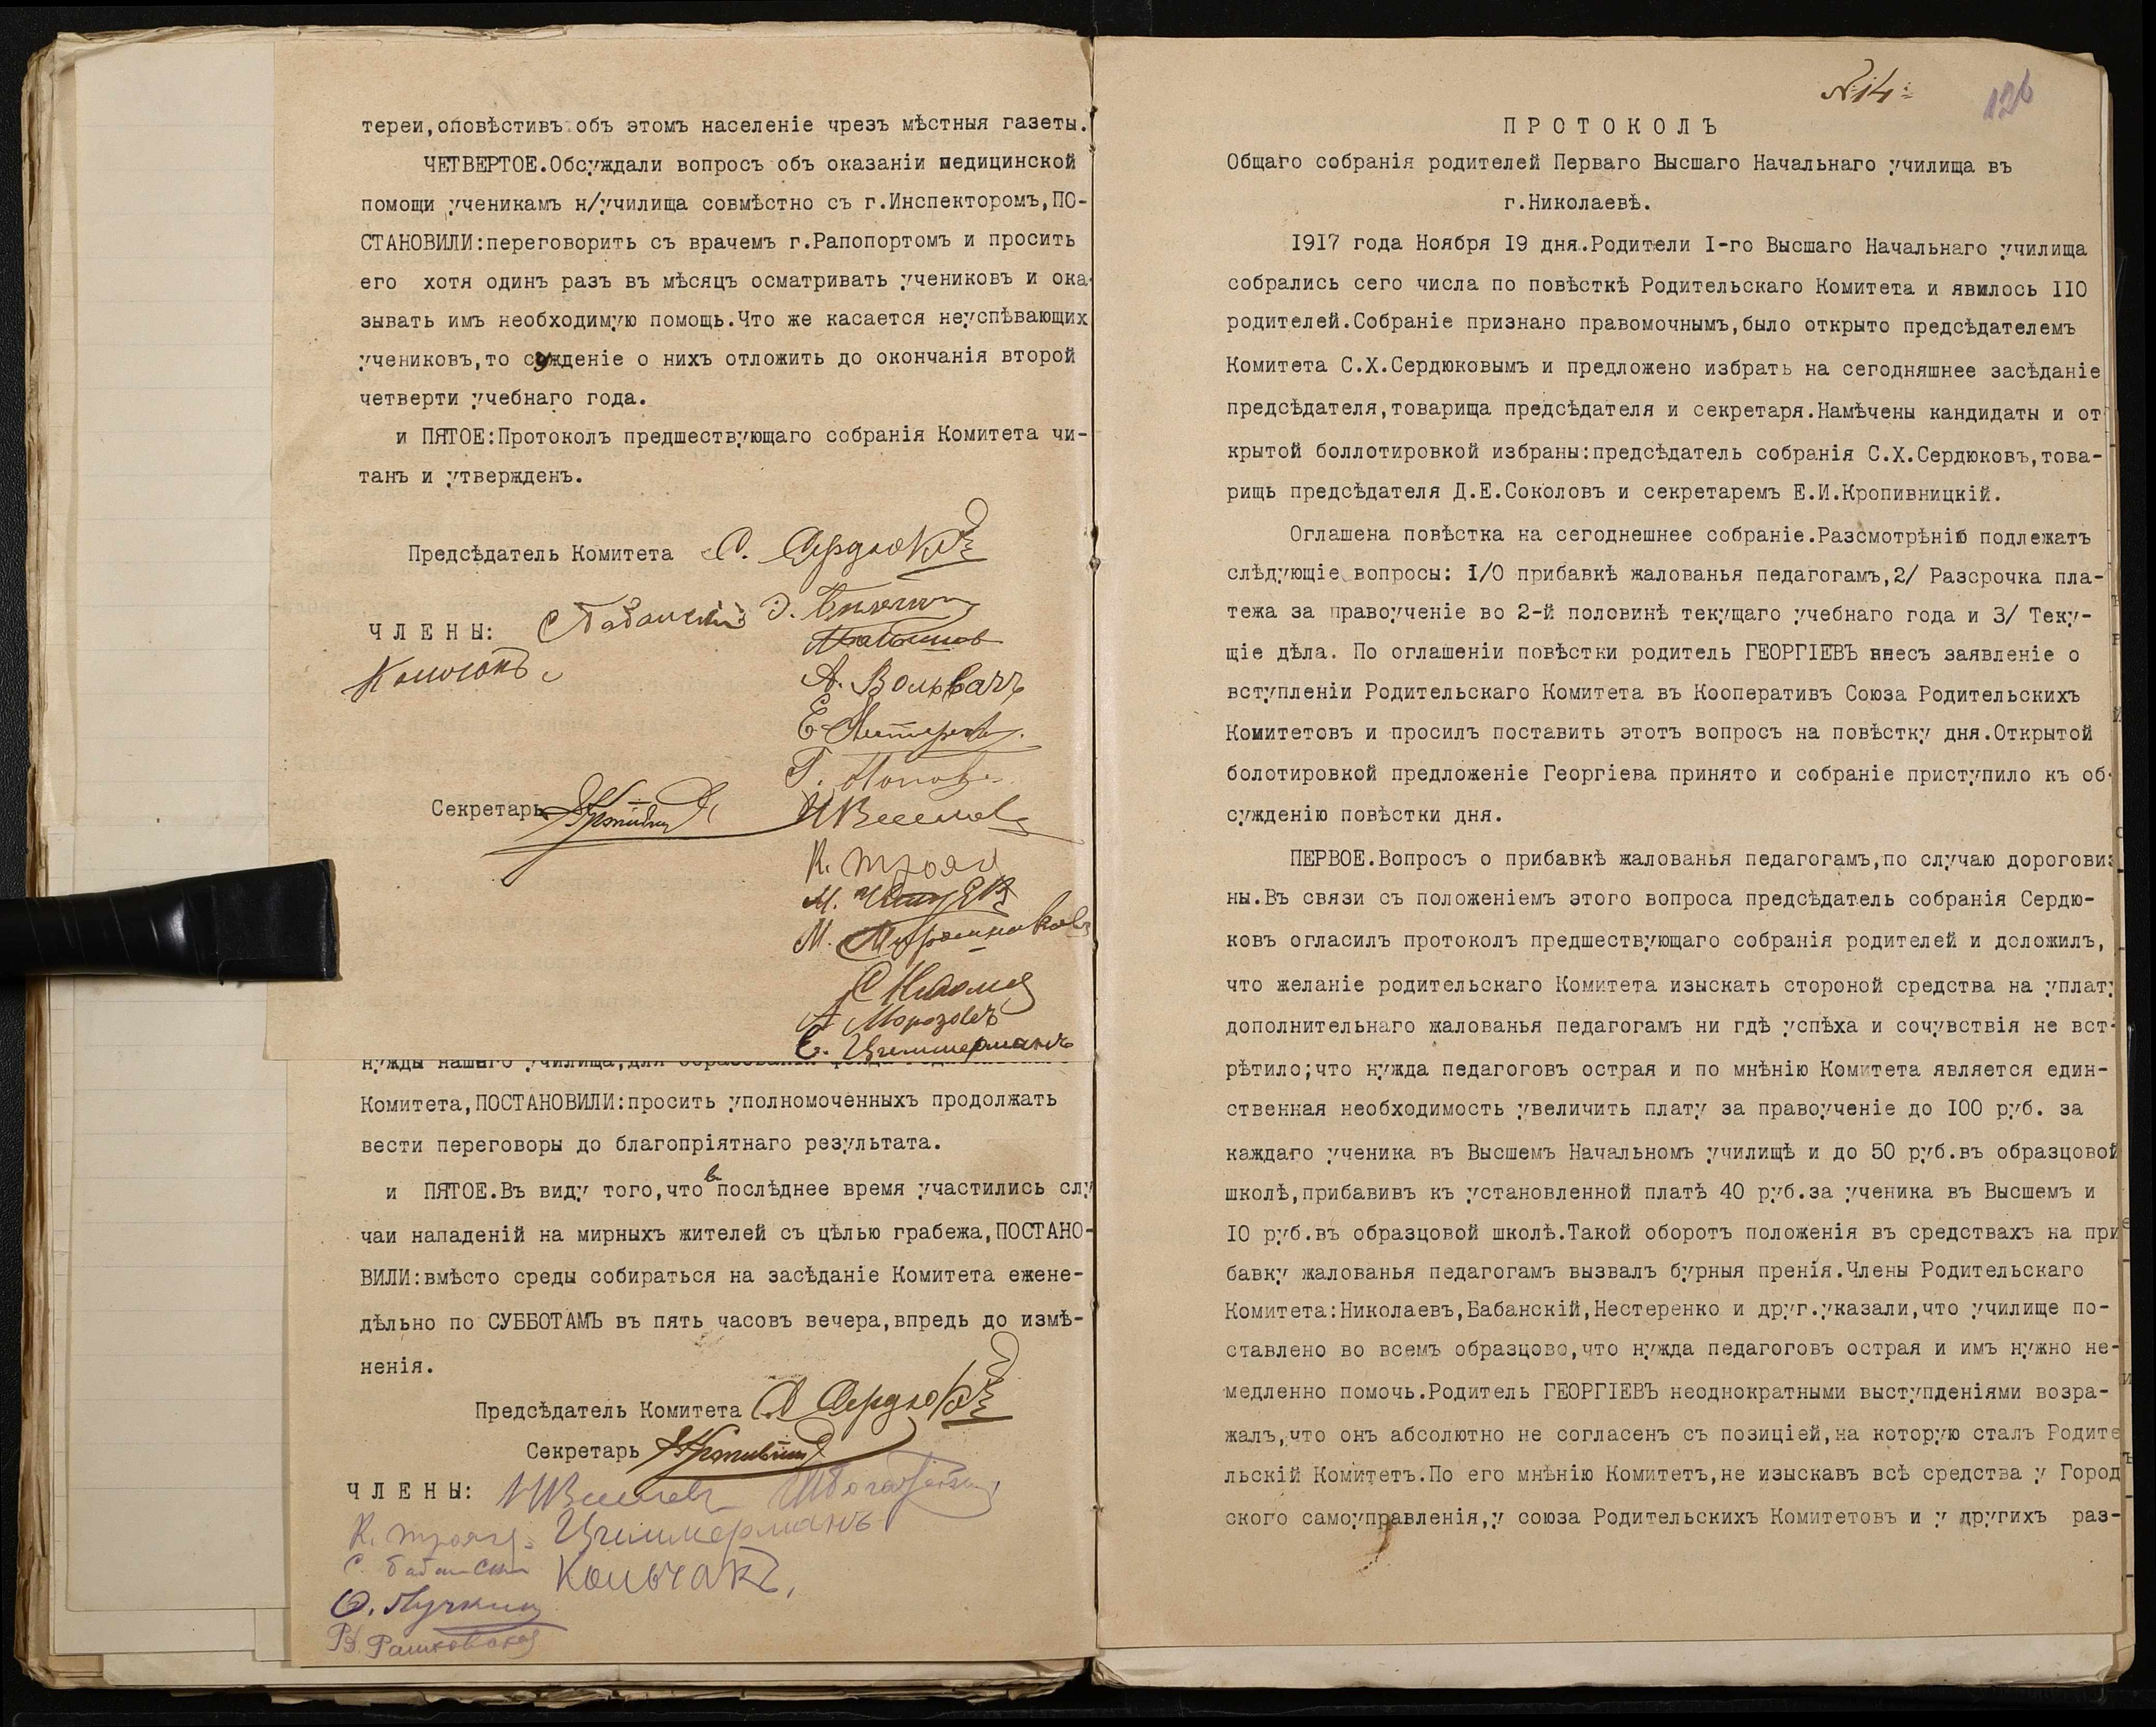 тереи,оповѣстивъ объ этомъ населеніе чрезъ мѣстныя газеты.
ЧЕТВЕРТОЕ.Обсуждали вопросъ объ оказаніи медицинской
помощи ученикамъ н/училища совмѣстно съ г.Инспекторомъ,ПО-
СТАНОВИЛИ:переговорить съ врачемъ г.Рапопортомъ и просить
его хотя одинъ разъ въ мѣсяцъ осматривать учениковъ и ока-
зывать имъ необходимую помощь.Что же касается неуспѣвающих
учениковъ,то сужденіе о нихъ отложить до окончанія второй
четверти учебнаго года.
и ПЯТОЕ:Протоколъ предшествующаго собранія Комитета чи-
танъ и утвержденъ.
Предсѣдатель Комитета С. Сердюковъ
ЧЛЕНЫ: С Бабанскій Э.
Колчакъ
А. Вольвачъ
Е
Г. Попов
Секретарь И Веселовъ
К. Троян
М.
М. Мирошниковъ
С
А Морозовъ
Е. Циммерманъ
нужды нашего училища,для образованія фонда
Комитета,ПОСТАНОВИЛИ:просить уполномоченныхъ продолжать
вести переговоры до благопріятнаго результата.
и ПЯТОЕ.Въ виду того,что в послѣднее время участились слу
чаи нападеній на мирныхъ жителей съ цѣлью грабежа,ПОСТАНО-
ВИЛИ:вмѣсто среды собираться на засѣданіе Комитета ежене-
дѣльно по СУББОТАМЪ въ пять часовъ вечера,впредь до измѣ-
ненія.
Предсѣдатель Комитета С Сердюковъ
Секретарь
ЧЛЕНЫ: И Веселовъ
К. Троян Циммерманъ
С. Бабанскій Колчакъ,
Ѳ. Пучкин
В. Рашковская
№ 14
126
ПРОТОКОЛЪ
Общаго собранія родителей Перваго Высшаго Начальнаго училища въ
г.Николаевѣ.
1917 года Ноября 19 дня.Родители I-го Высшаго Начальнаго училища
собрались сего числа по повѣсткѣ Родительскаго Комитета и явилось 110
родителей.Собраніе признано правомочнымъ,было открыто предсѣдателемъ
Комитета С.Х.Сердюковымъ и предложено избрать на сегодняшнее засѣданіе
предсѣдателя,товарища предсѣдателя и секретаря.Намѣчены кандидаты и от
крытой боллотировкой избраны:предсѣдатель собранія С.Х.Сердюковъ,това-
рищъ предсѣдателя Д.Е.Соколовъ и секретаремъ Е.И.Кропивницкій.
Оглашена повѣстка на сегоднешнее собраніе.Разсмотрѣнію подлежатъ
слѣдующіе вопросы: 1/О прибавкѣ жалованья педагогамъ,2/ Разсрочка пла-
тежа за правоученіе во 2-й половинѣ текущаго учебнаго года и 3/ Теку-
щіе дѣла. По оглашеніи повѣстки родитель ГЕОРГІЕВЪ внесъ заявленіе о
вступленіи Родительскаго Комитета въ Кооперативъ Союза Родительскихъ
Комитетовъ и просилъ поставить этотъ вопросъ на повѣстку дня.Открытой
болотировкой предложеніе Георгіева принято и собраніе приступило къ об-
сужденію повѣстки дня.
ПЕРВОЕ.Вопросъ о прибавкѣ жалованья педагогамъ,по случаю дороговиз
ны.Въ связи съ положеніемъ этого вопроса предсѣдатель собранія Сердю-
ковъ огласилъ протоколъ предшествующаго собранія родителей и доложилъ,
что желаніе родительскаго Комитета изыскать стороной средства на уплату
дополнительнаго жалованья педагогамъ ни гдѣ успѣха и сочувствія не вст-
рѣтило;что нужда педагоговъ острая и по мнѣнію Комитета является един-
ственная необходимость увеличить плату за правоученіе до 100 руб. за
каждаго ученика въ Высшемъ Начальномъ училищѣ и до 50 руб.въ образцовой
школѣ,прибавивъ къ установленной платѣ 40 руб.за ученика въ Высшемъ и
10 руб.въ образцовой школѣ.Такой оборотъ положенія въ средствахъ на при
бавку жалованья педагогамъ вызвалъ бурныя пренія.Члены Родительскаго
Комитета:Николаевъ,Бабанскій,Нестеренко и друг.указали,что училище по-
ставлено во всемъ образцово,что нужда педагоговъ острая и имъ нужно не-
медленно помочь.Родитель ГЕОРГІЕВЪ неоднократными выступденіями возра-
жалъ,что онъ абсолютно не согласенъ съ позиціей,на которую сталъ Родите
льскій Комитетъ.По его мнѣнію Комитетъ,не изыскавъ всѣ средства у Город
ского самоуправленія,у союза Родительскихъ Комитетовъ и у другихъ раз-